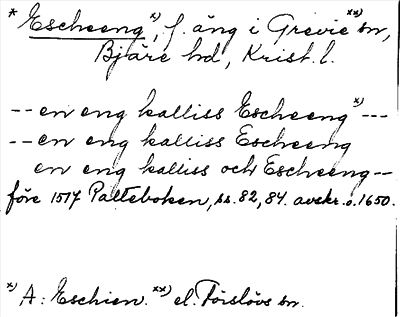 * Escheeng x), f. äng i Grevie xx) sn,
Bjäre hd, Krist. l.
-- en eng kalliss Escheeng x) ---
-- en eng kalliss Escheeng
en eng kalliss och Escheeng --
före 1517 Palteboken, ss. 82, 84. avskr. o. 1650.
x) A: Eschien. xx) el. Förslövs sn.